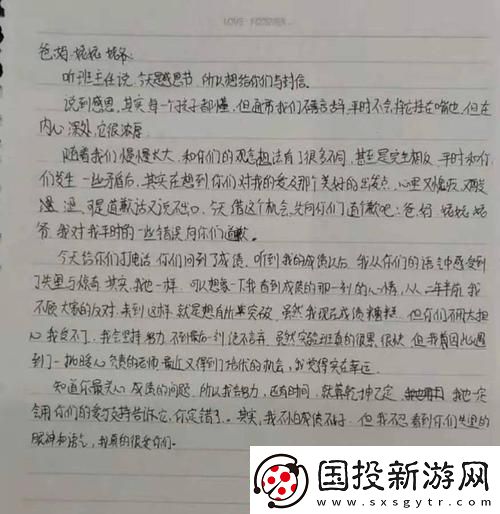 LOVE FOREVER...
爸,妈,姥姥,姥爷:
听班主任说,今天是感恩节,所以想给你们写封信。
说到感恩,其实每一个孩子都懂,但通常我们不善言辞,平时不会将它挂在嘴边,但在
内心深处,它很浓厚。
随着我们慢慢长大,和你们的观念想法有了很多不同,甚至是完全相反,平时和你
们发生一些矛盾后,其实在想到你们对我的爱及那个美好的出发点,心里又愧疚,又
漫,可是道歉话又说不出口,今天借这个机会,先向你们道个歉吧:爸,妈,姥姥,姥
爷,我对我平时的一些错误向你们道歉。
今天给你们打电话,你们问到了成绩,听到我的成绩以后,我从你们的语气中感受到
了失望与惊奇,其实,我也一样,可以想象一下我看到成绩的那一刻的心情,从二年前,我
不顾大家的反对,来到这样,就是想有所突破,虽然我现在成绩糟糕,但你们不用太担
心,我受不了,我会坚持努力,不到最后一刻绝不言弃,虽然实验班真的很累,很快,但我有因此遇
到了一批暖心负责的老师,最近又得到了培优的机会,我觉得实在幸运。
知道你最关心成绩的问题,所以我会努力,还有时间,就算乾坤已定,我也一定
会用你们的爱与支持告诉它,你定错了。其实,我不怕成绩不好,但我不忍看到你们失望的
眼神和语气,我真的很爱你们。
国投新游网
www.sxsgytr.com